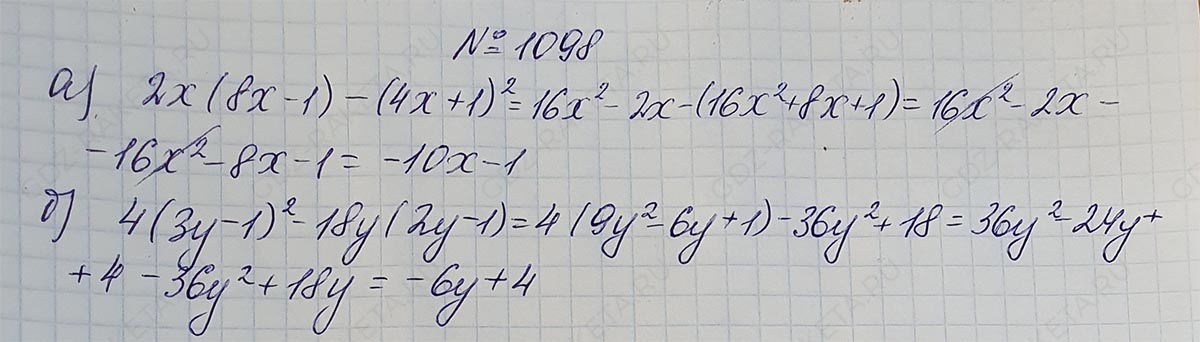 № 1098
а) 2x(8x-1)-(4x+1)²=16x²-2x-(16x²+8x+1)=16x²-2x-
-16x²-8x-1=-10x-1
б) 4(3y-1)²-18y(2y-1)=4(9y²-6y+1)-36y²+18=36y²-24y+
+4-36y²+18y=-6y+4